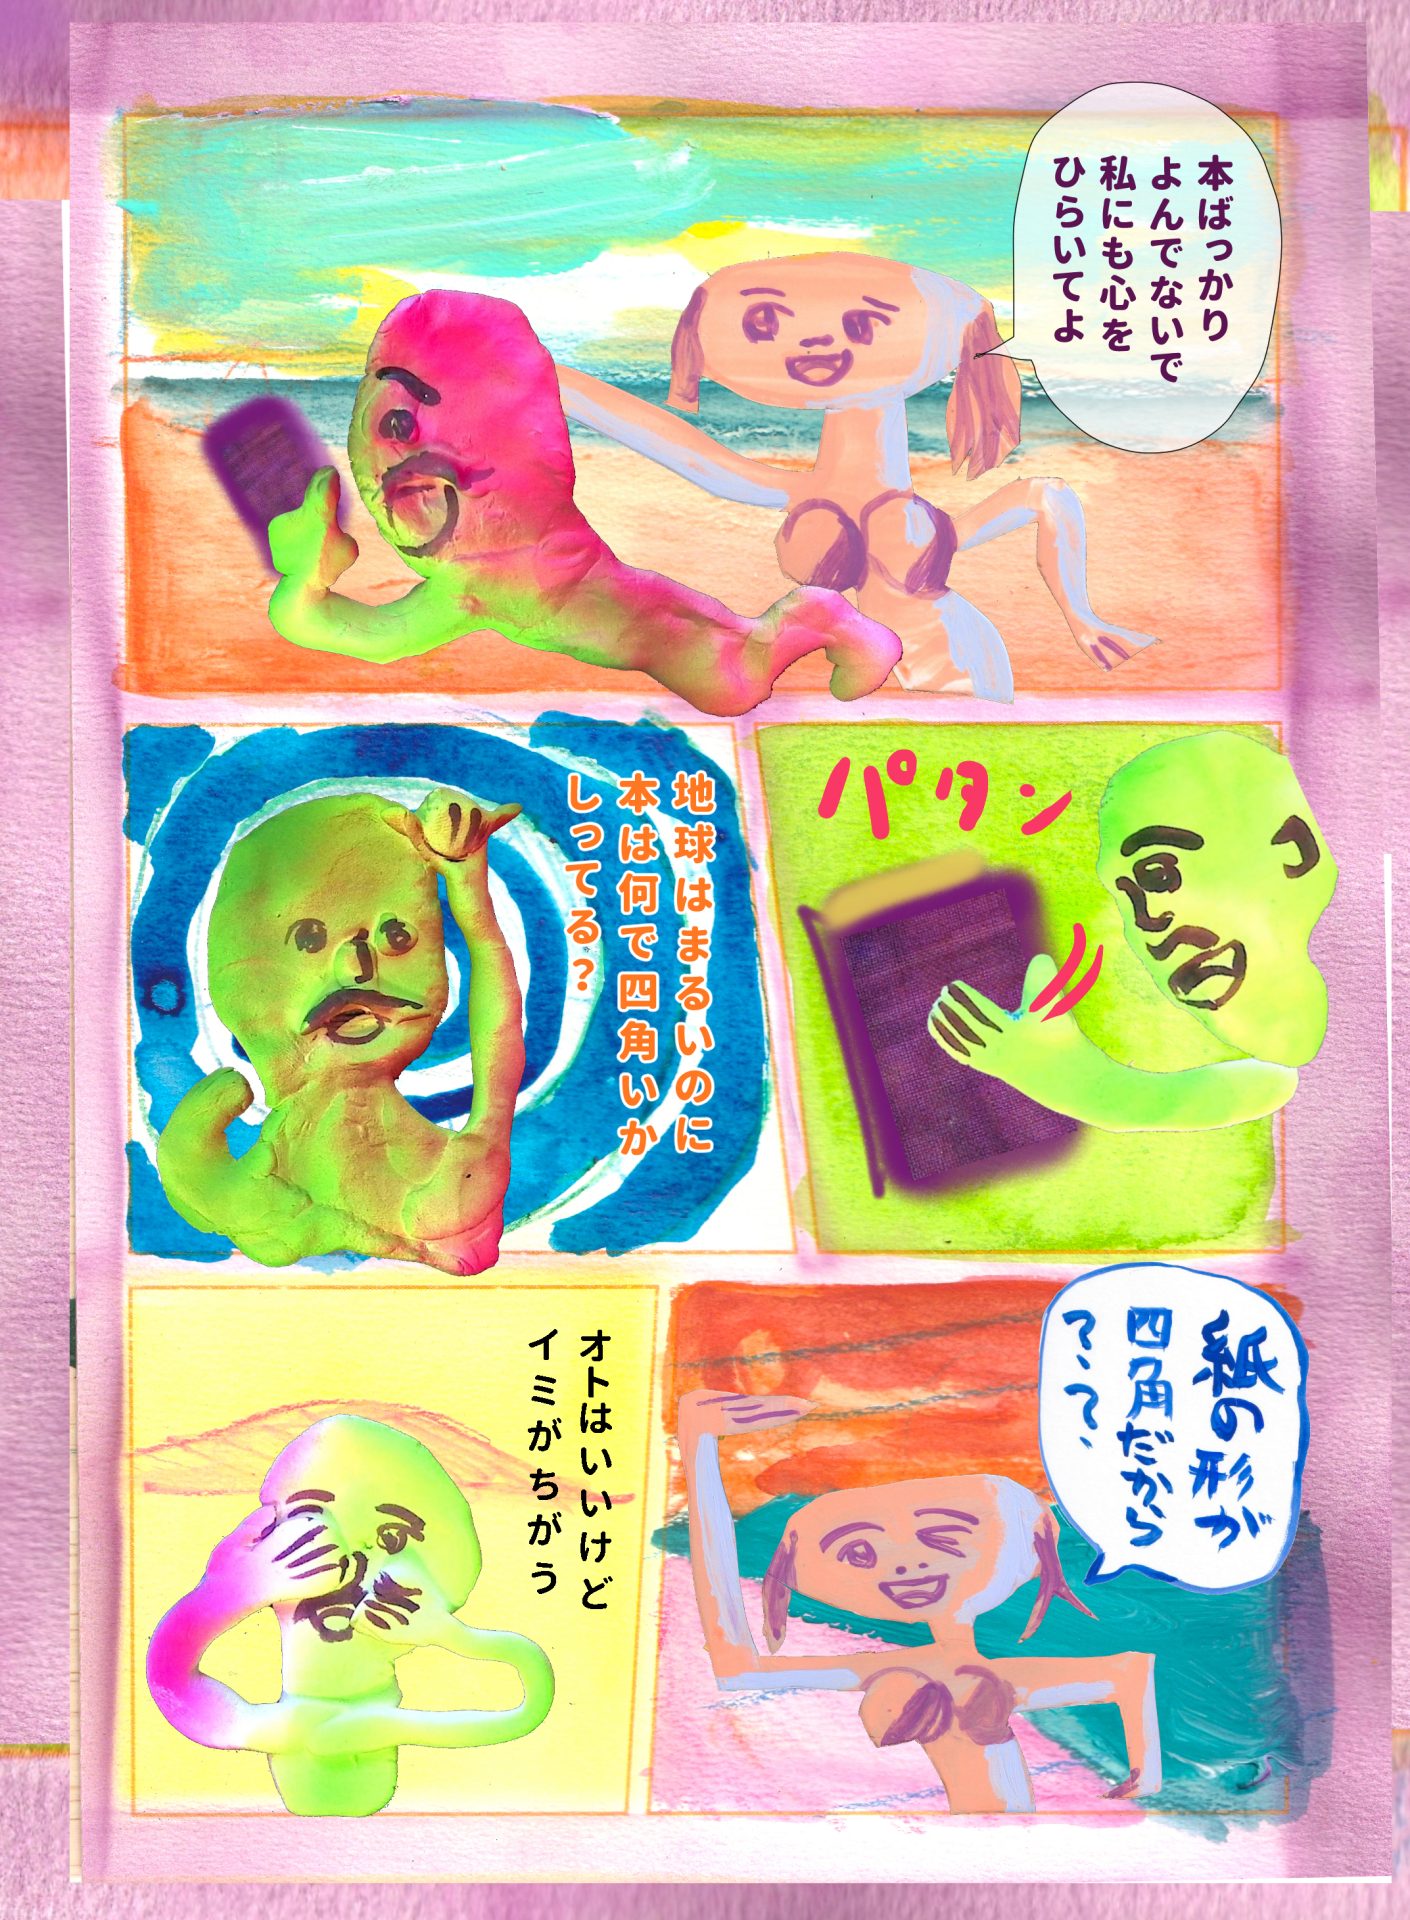 本ばっかり
よんでないで
私にも心を
ひらいてよ
パタン
地球はまるいのに
本は何で四角いか
しってる？
紙の形が
四角だから
？、？、
オトはいいけど
イミがちがう